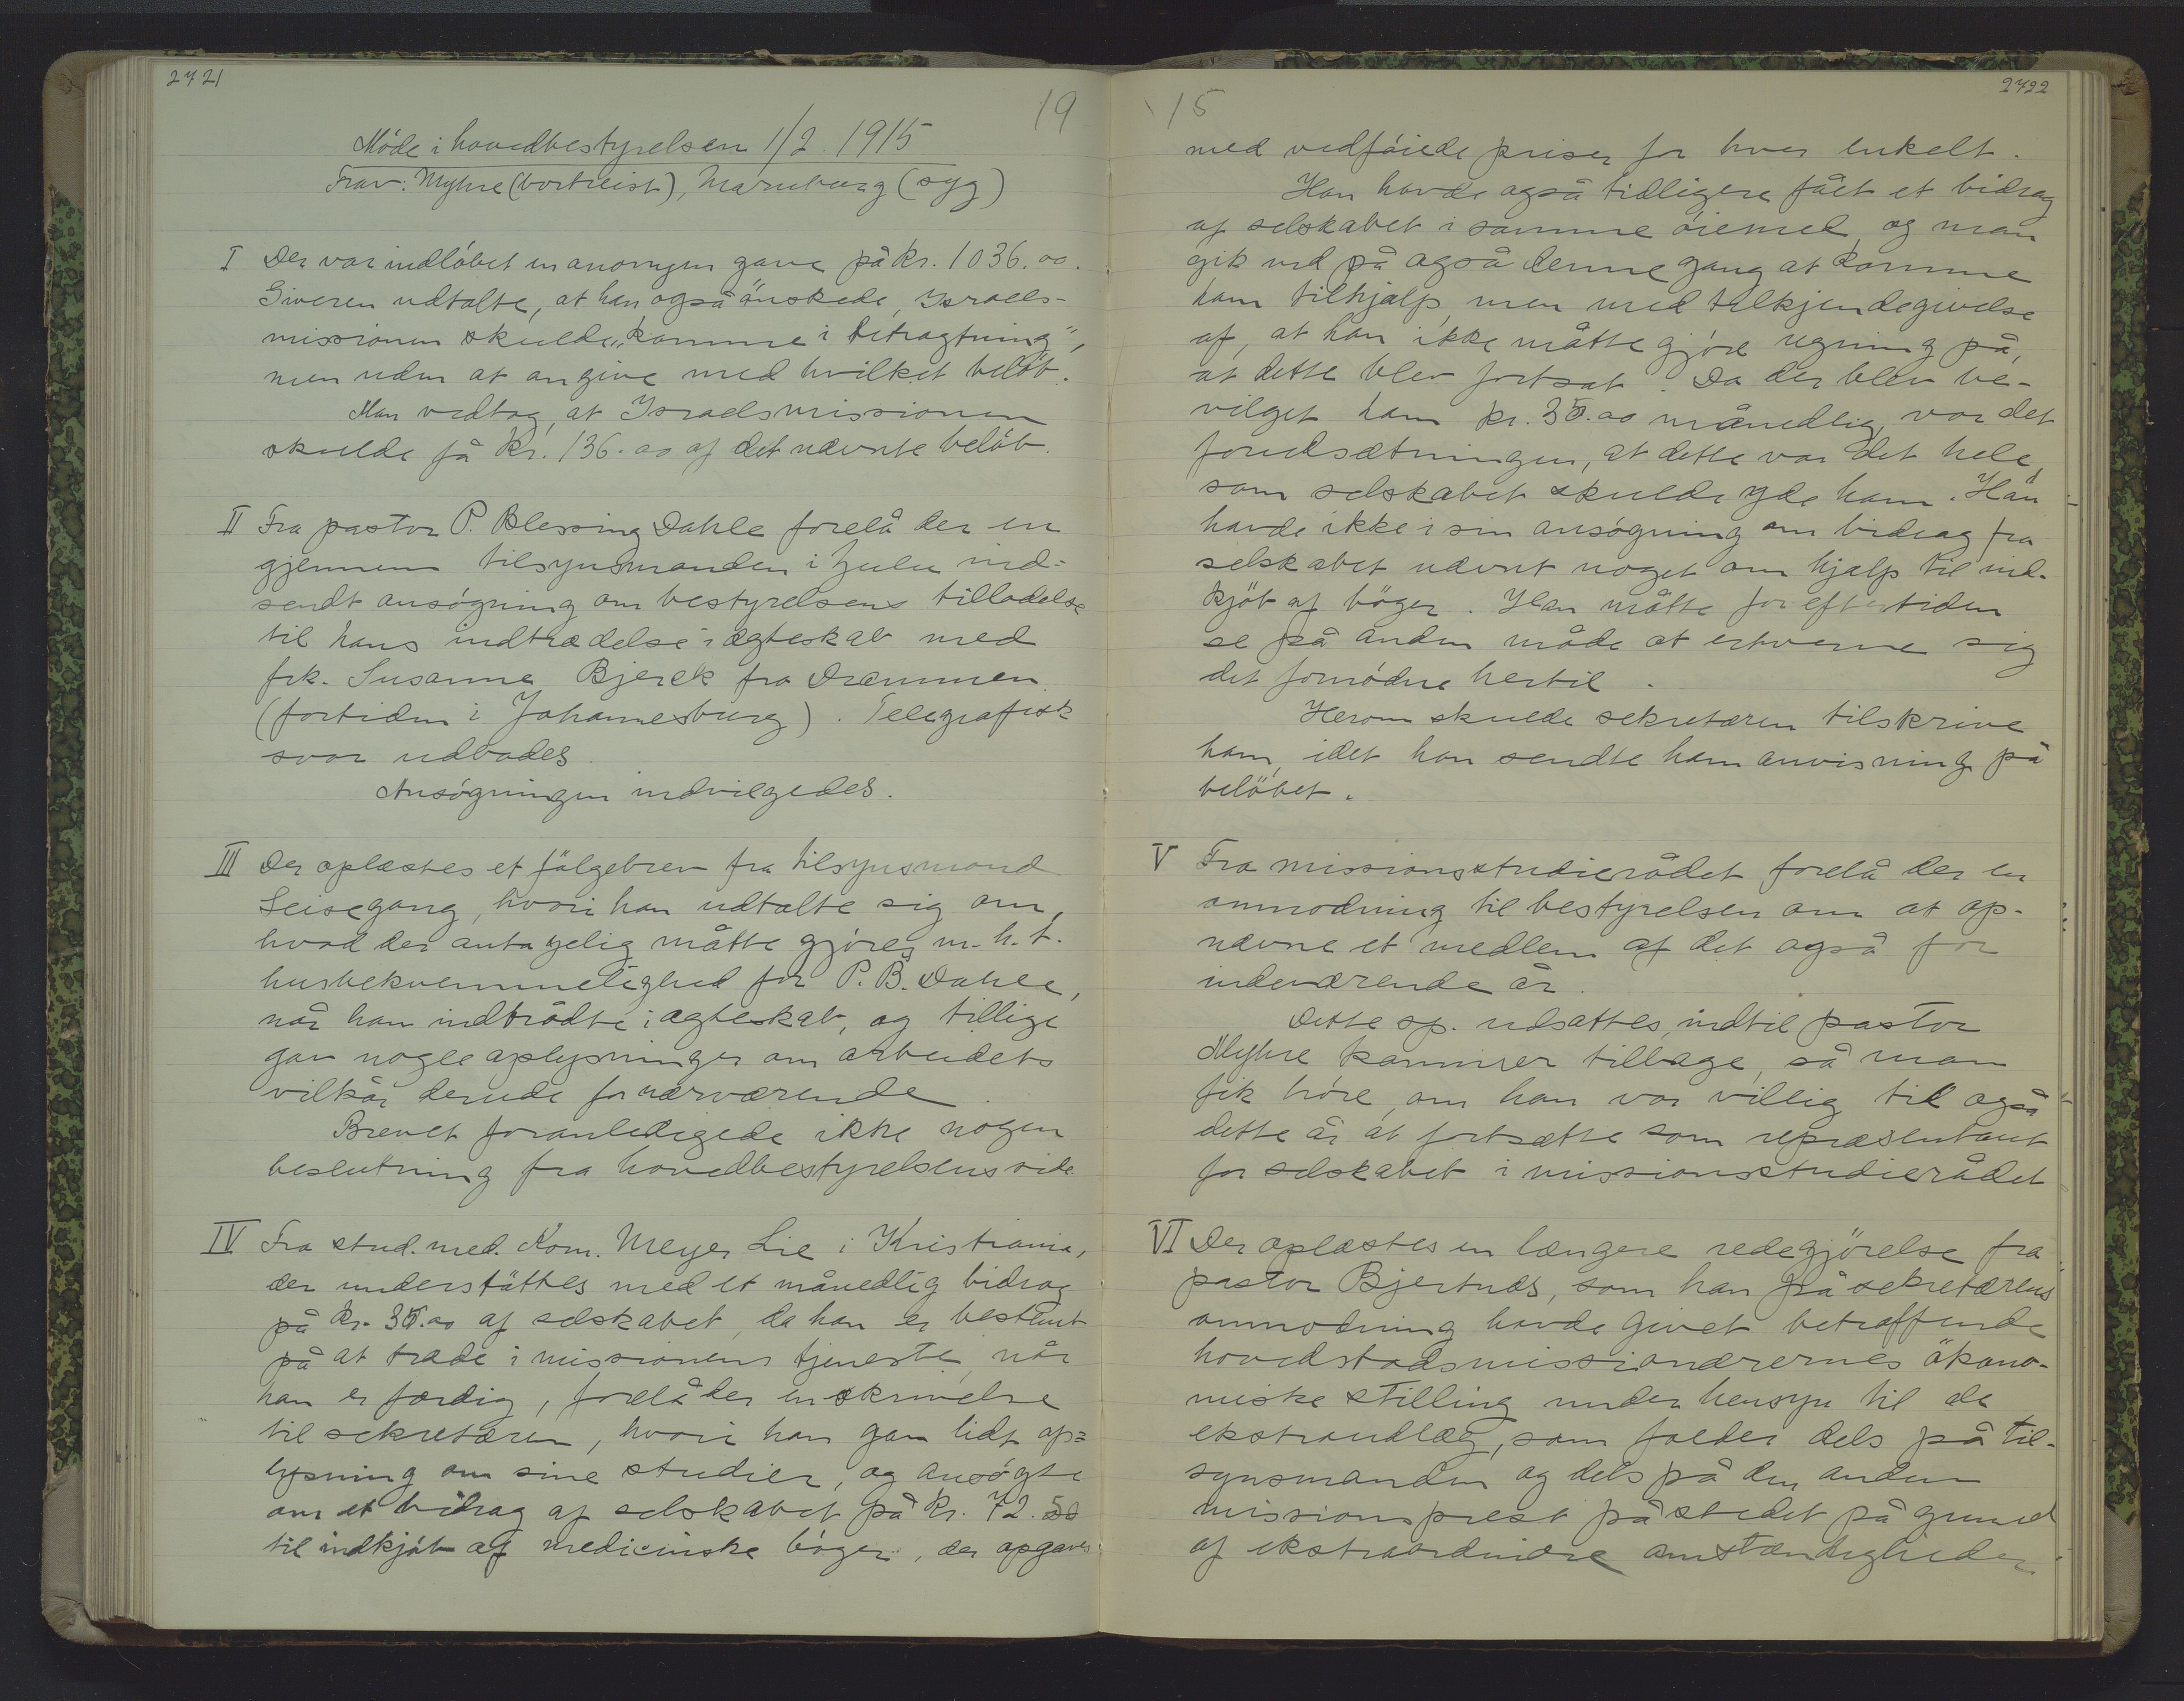 2721
19
Möde i hovedbestyrelsen 1/2. 1915
Frav: Myhre (bortreist), Marnburg (syg)
I Der var indlöbet en anonym gave på kr. 1036.00.
Giveren udtalte, at han også önskede, Israels-
missionen skulde „komme i betragtning",
men uden at angive med hvilket belöb.
Man vedtog, at Israelsmissionen
skulde få kr. 136.00 af det nævnte belöb.
II Fra pastor P. Blessing Dahle forelå der en
gjennem tilsynsmanden i Zulu ind-
sendt ansögning om bestyrelsens tilladelse
til hans indtrædelse i ægteskab med
frk. Susanna Bjerck fra Drammen
(fortiden i Johannesburg). Telegrafisk
svar udbades.
Ansögningen indvilgedes.
III Der oplæstes et fölgebrev fra tilsynsmand
Leisegang, hvori han udtalte sig om,
hvad der antagelig måtte gjöres m.h.t.
husbekvemmelighed for P. B. Dahle,
når han indtrådte i ægteskab, og tillige
gav nogle oplysninger om arbeidets
vilkår derude for nærværende.
Brevet foranledigede ikke nogen
beslutning fra hovedbestyrelsens side.
IV Fra stud. med. Kom. Meyer Lie i Kristiania,
der understöttes med et månedlig bidrag
på kr. 35.00 af selskabet, da han er bestemt
på at træde i missionens tjeneste, når
han er færdig, forelå der en skrivelse
til sekretæren, hvori han gav lidt op=
lysning om sine studier, og ansögte
om et bidrag af selskabet på kr. 72.50
til indkjöb af medicinske böger, der opgaves
2722
15
med vedföiede priser for hver enkelt.
Han havde også tidligere fået et bidrag
af selskabet i samme öiemed, og man
gik ind på også denne gang at komme
ham tilhjælp, men med tilkjendegivelse
af, at han ikke måtte gjöre regning på,
at dette blev fortsat. Da der blev be-
vilget ham kr. 35.00 månedlig, var det
forudsætningen, at dette var det hele,
som selskabet skulde yde ham. Han
havde ikke i sin ansögning om bidrag fra
selskabet nævnt noget om hjælp til ind-
kjöb af böger. Han måtte for eftertiden
se på anden måde at erhverve sig
det fornödne hertil.
Herom skulde sekretæren tilskrive
ham, idet han sendte ham anvisning på
belöbet.
V Fra missionsstudierådet forelå der en
anmodning til bestyrelsen om at op-
nævne et medlem af det også for
indeværende år.
Dette sp. udsattes, indtil pastor
Myhre kommer tilbage, så man
fik höre, om han var villig til også
dette år at fortsætte som repræsentant
for selskabet i missionsstudierådet
VI Der oplæstes en længere redegjörelse fra
pastor Bjertnæs, som han på sekretærens
anmodning havde givet betræffende
hovedstadsmissionærernes ökono-
miske stilling under hensyn til de
ekstraudlæg, som falder dels på til-
synsmanden og dels på den anden
missionsprest på stedet på grund
af ekstraordinære omstændigheder